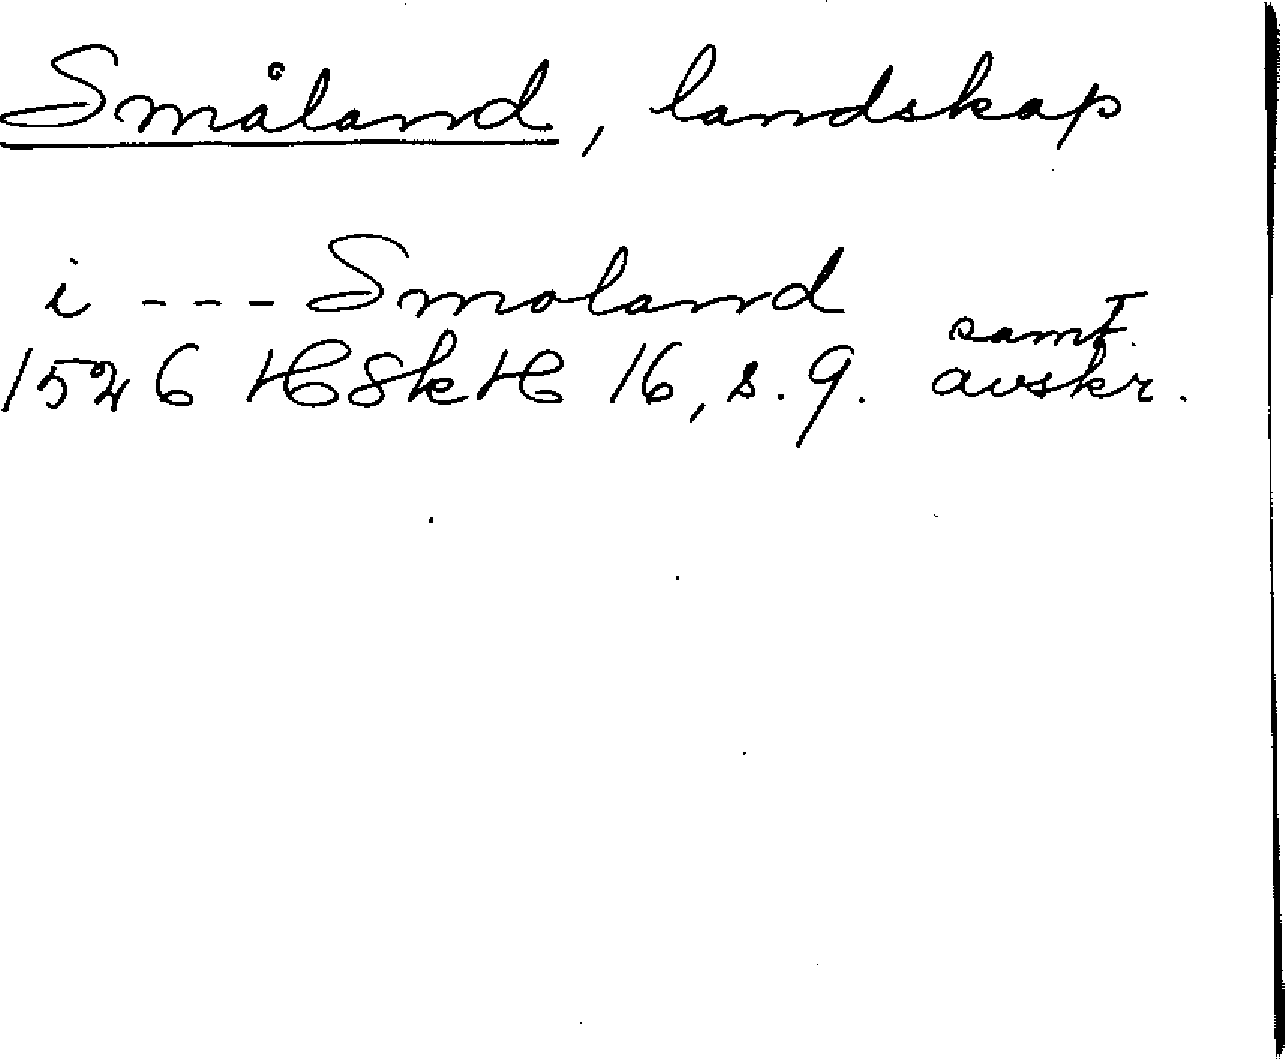 Småland, landskap
i --- Smoland
samt.
1526 HSkH 16, s. 9. avskr.